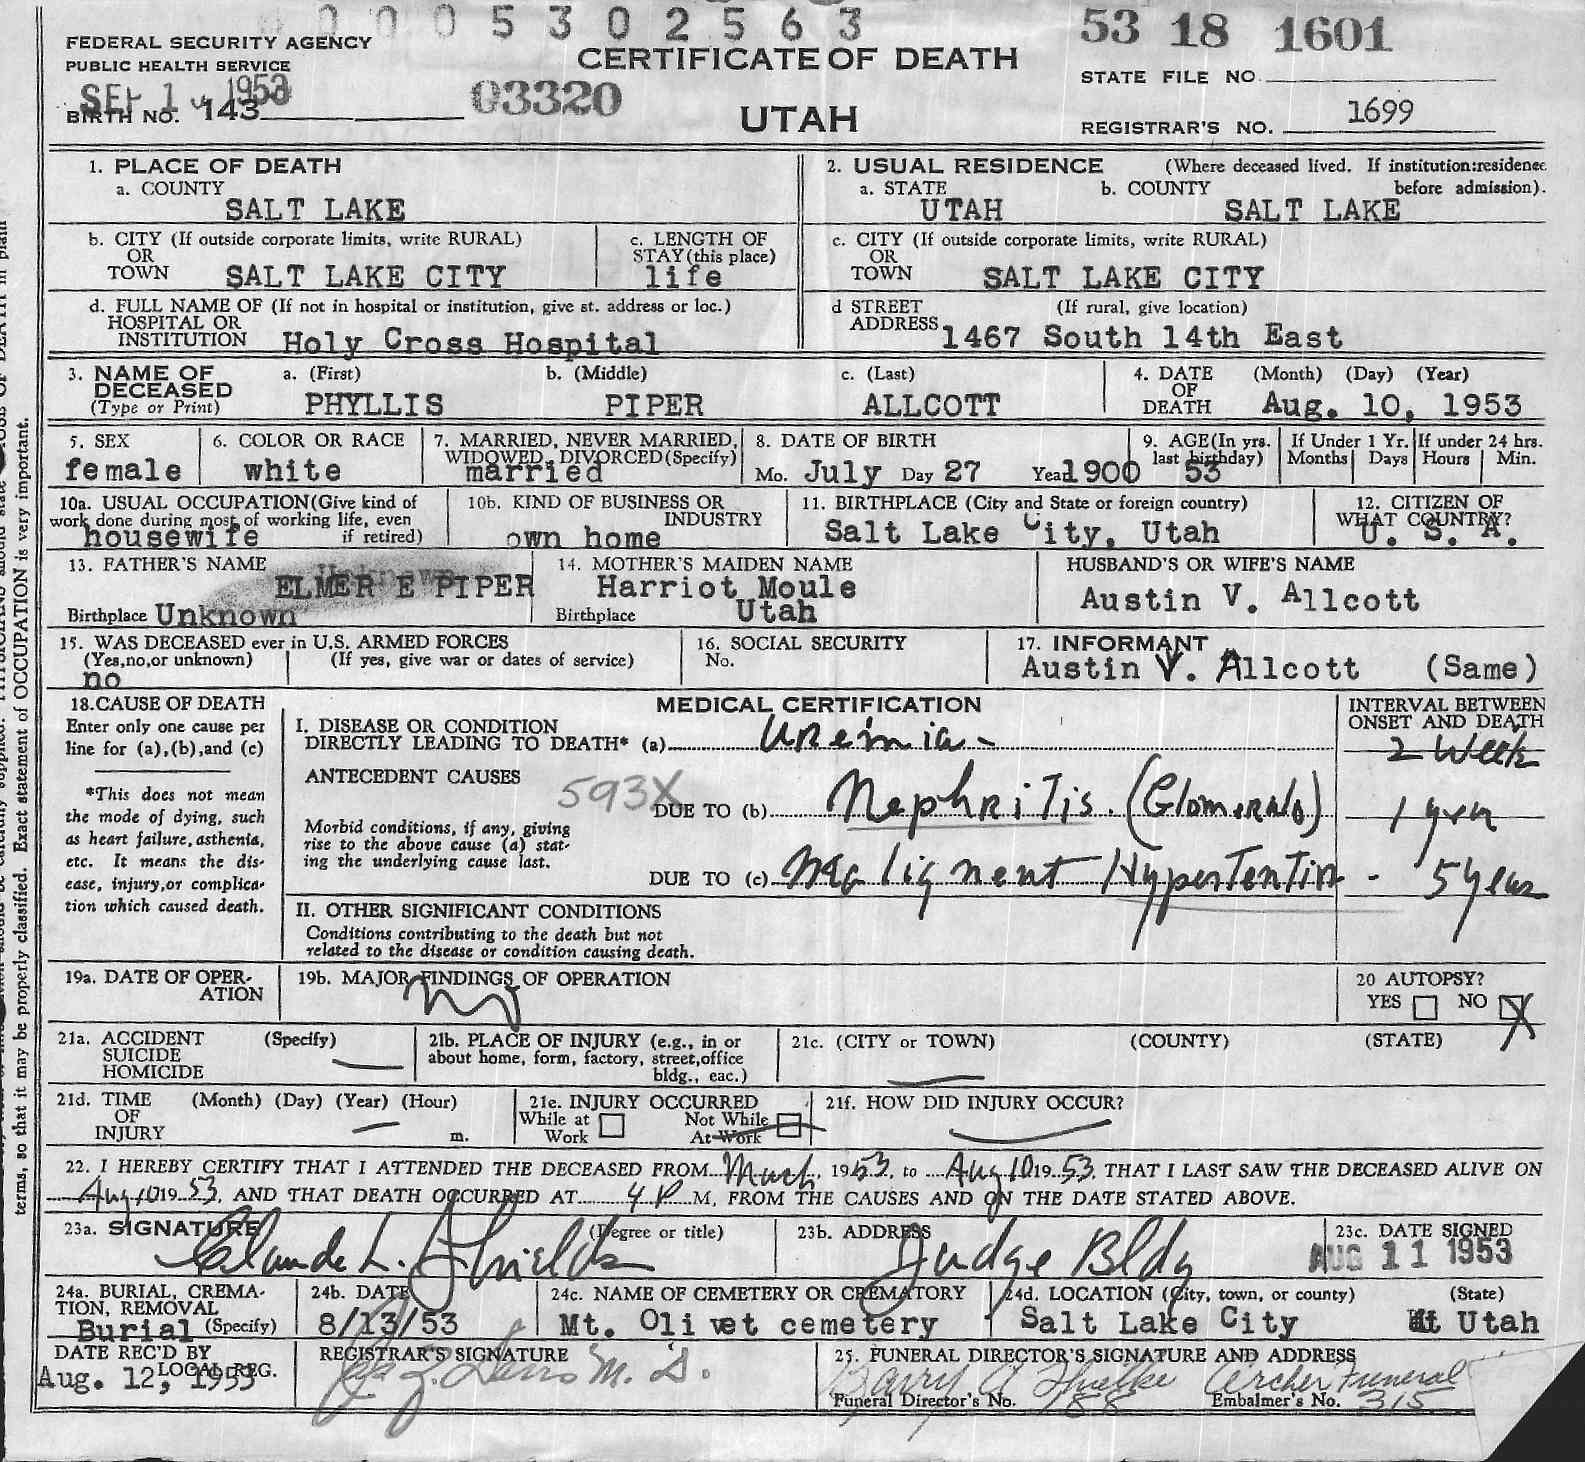 0 0 0 5 3 0 2 5 6 3
53 18 1601
FEDERAL SECURITY AGENCY
PUBLIC HEALTH SERVICE
CERTIFICATE OF DEATH
STATE FILE NO.
SEP 1 1953
BIRTH NO. 143
03320
UTAH
REGISTRAR'S NO. 1699
1. PLACE OF DEATH
a. COUNTY
SALT LAKE
2. USUAL RESIDENCE (Where deceased lived. If institution:residence before admission).
a. STATE b. COUNTY
UTAH SALT LAKE
b. CITY (If outside corporate limits, write RURAL)
OR
TOWN SALT LAKE CITY
c. LENGTH OF
STAY (this place)
life
c. CITY (If outside corporate limits, write RURAL)
OR
TOWN SALT LAKE CITY
d. FULL NAME OF (If not in hospital or institution, give st. address or loc.)
HOSPITAL OR
INSTITUTION Holy Cross Hospital
d STREET (If rural, give location)
ADDRESS 1467 South 14th East
3. NAME OF a. (First) b. (Middle) c. (Last)
DECEASED
(Type or Print) PHYLLIS PIPER ALLCOTT
4. DATE (Month) (Day) (Year)
OF
DEATH Aug. 10, 1953
5. SEX
female
6. COLOR OR RACE
white
7. MARRIED, NEVER MARRIED,
WIDOWED, DIVORCED (Specify)
married
8. DATE OF BIRTH
Mo. July Day 27 Year 1900
9. AGE (In yrs.
last birthday)
53
If Under 1 Yr.
Months Days
If under 24 hrs.
Hours Min.
10a. USUAL OCCUPATION (Give kind of
work done during most of working life, even
if retired)
housewife
10b. KIND OF BUSINESS OR
INDUSTRY
own home
11. BIRTHPLACE (City and State or foreign country)
Salt Lake City, Utah
12. CITIZEN OF
WHAT COUNTRY?
U. S. A.
13. FATHER'S NAME
ELMER E PIPER
Birthplace Unknown
14. MOTHER'S MAIDEN NAME
Harriot Moule
Birthplace Utah
HUSBAND'S OR WIFE'S NAME
Austin V. Allcott
15. WAS DECEASED ever in U.S. ARMED FORCES
(Yes,no,or unknown) (If yes, give war or dates of service)
no
16. SOCIAL SECURITY
No.
17. INFORMANT
Austin V. Allcott (Same)
18. CAUSE OF DEATH
Enter only one cause per
line for (a),(b),and (c)
*This does not mean
the mode of dying, such
as heart failure, asthenia,
etc. It means the dis-
ease, injury,or complica-
tion which caused death.
MEDICAL CERTIFICATION
INTERVAL BETWEEN
ONSET AND DEATH
I. DISEASE OR CONDITION
DIRECTLY LEADING TO DEATH* (a) Uremia -
2 Week
ANTECEDENT CAUSES
593X
DUE TO (b) Nephritis. (Glomerulo)
1 year
Morbid conditions, if any, giving
rise to the above cause (a) stat-
ing the underlying cause last.
DUE TO (c) Malignent Hypertention - 5 years
II. OTHER SIGNIFICANT CONDITIONS
Conditions contributing to the death but not
related to the disease or condition causing death.
19a. DATE OF OPER-
ATION
19b. MAJOR FINDINGS OF OPERATION
20 AUTOPSY?
YES NO X
21a. ACCIDENT (Specify)
SUICIDE
HOMICIDE
21b. PLACE OF INJURY (e.g., in or
about home, form, factory, street,office
bldg., eac.)
21c. (CITY or TOWN) (COUNTY) (STATE)
21d. TIME (Month) (Day) (Year) (Hour)
OF
INJURY m.
21e. INJURY OCCURRED
While at Not While
Work At Work
21f. HOW DID INJURY OCCUR?
22. I HEREBY CERTIFY THAT I ATTENDED THE DECEASED FROM March, 1953, to Aug 10 1953, THAT I LAST SAW THE DECEASED ALIVE ON
Aug 10 1953, AND THAT DEATH OCCURRED AT 4 P M, FROM THE CAUSES AND ON THE DATE STATED ABOVE.
23a. SIGNATURE (Degree or title)
Claude L. Shields
23b. ADDRESS
Judge Bldg
23c. DATE SIGNED
AUG 11 1953
24a. BURIAL, CREMA-
TION, REMOVAL
(Specify)
Burial
24b. DATE
8/13/53
24c. NAME OF CEMETERY OR CREMATORY
Mt. Olivet cemetery
24d. LOCATION (City, town, or county) (State)
Salt Lake City Utah
DATE REC'D BY
LOCAL REG.
Aug. 12, 1953
REGISTRAR'S SIGNATURE
M. D.
25. FUNERAL DIRECTOR'S SIGNATURE AND ADDRESS
Archer Funeral
Funeral Director's No. 188 Embalmer's No. 315
terms, so that it may be properly classified. Exact statement of OCCUPATION is very important.